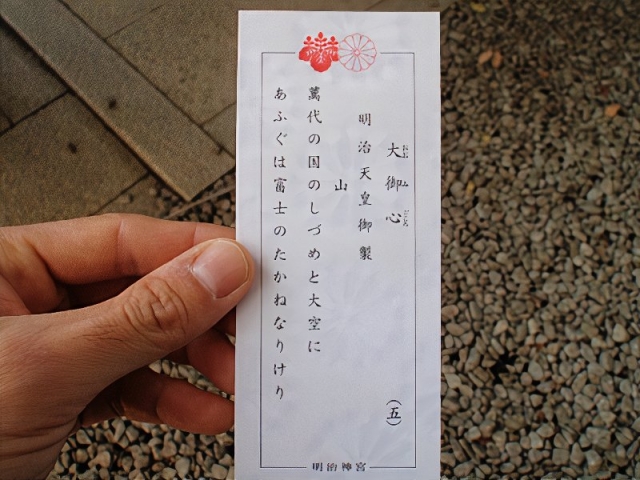 大御心
おおみごころ
明治天皇御製
山
萬代の国のしづめと大空に
あふぐは富士のたかねなりけり
(五)
明治神宮